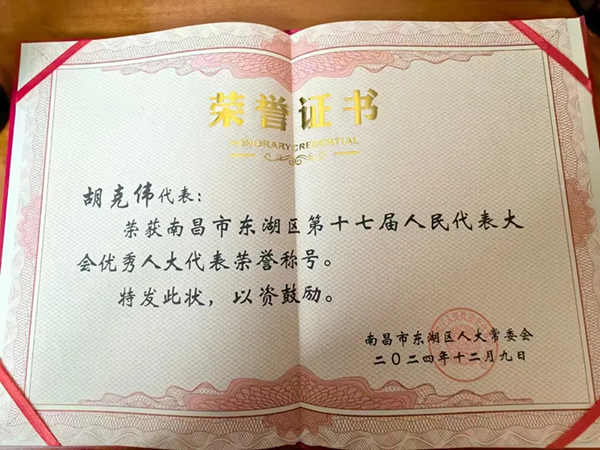 荣誉证书
HONORARY CREDENTIAL
胡克伟代表：
荣获南昌市东湖区第十七届人民代表大
会优秀人大代表荣誉称号。
特发此状，以资鼓励。
南昌市东湖区人大常委会
二〇二四年十二月九日